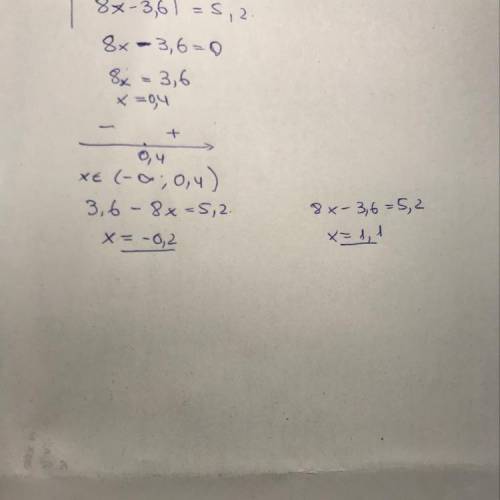 |8x-3,6| = 5,2.
8x - 3,6 = 0
8x = 3,6
x = 0,4
- +
0,4
x ∈ (-∞; 0,4)
3,6 - 8x = 5,2.
x = -0,2
8x - 3,6 = 5,2
x = 1,1